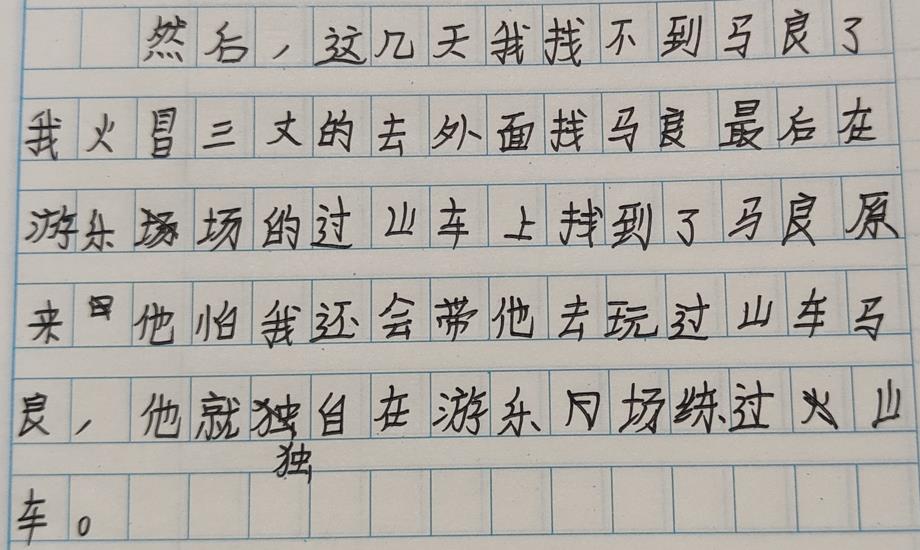 然后，这几天我找不到马良了
我火冒三丈的去外面找马良最后在
游乐场的过山车上找到了马良原
来他怕我还会带他去玩过山车马
良，他就独自在游乐场练过山
独
车。